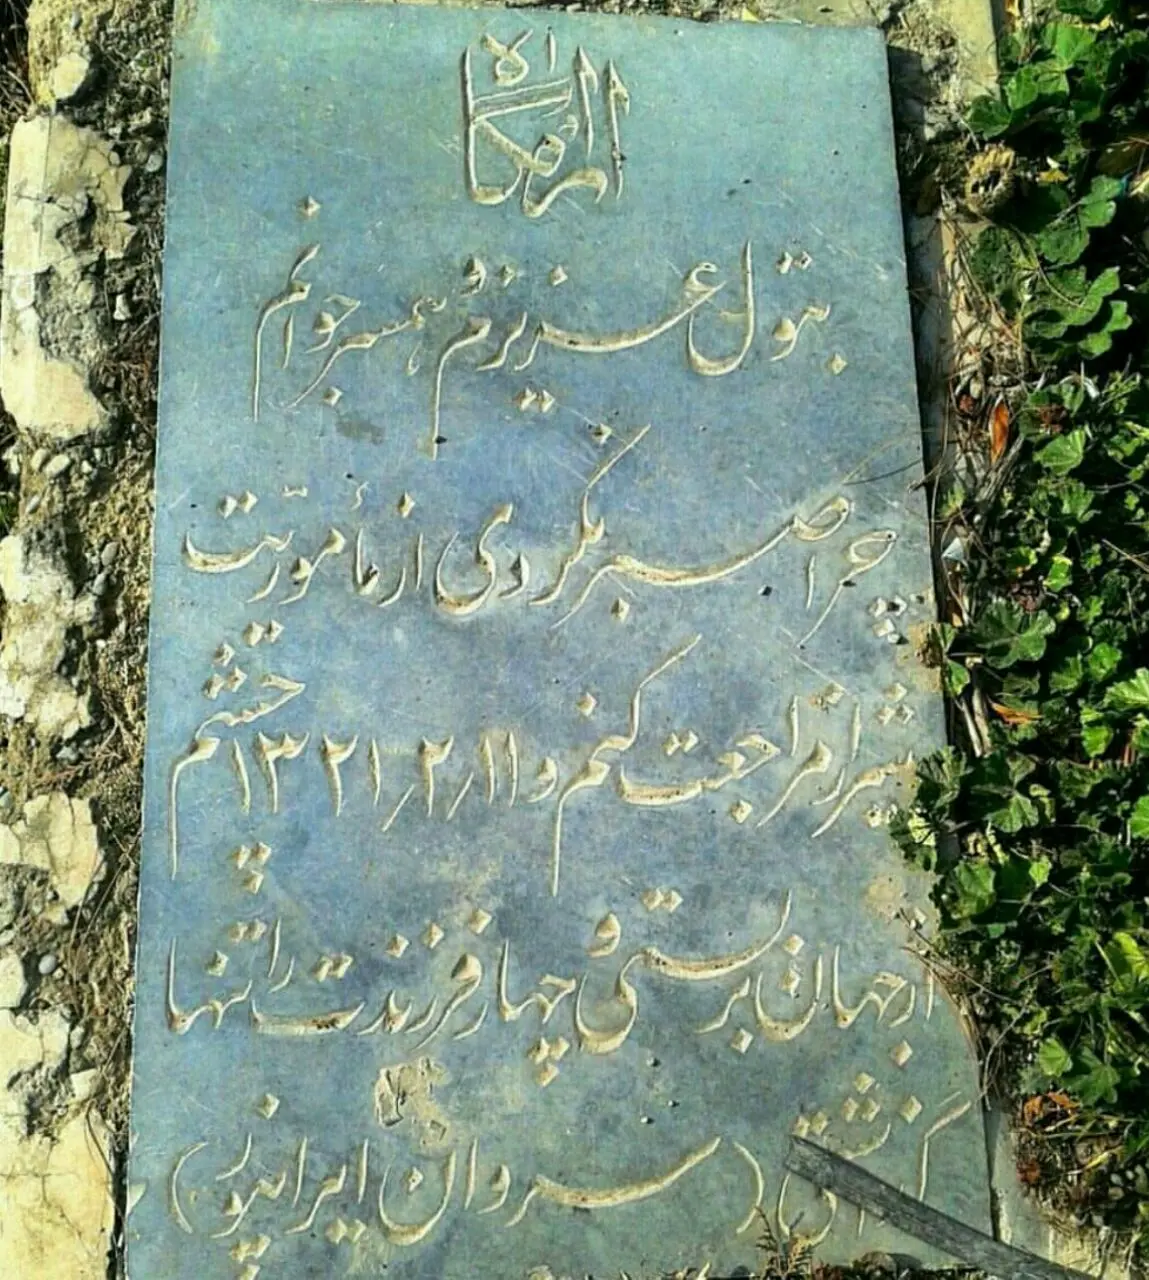 آرامگاه
بتول عزیزم و همسر جوانم
چرا صبر نکردی از مأموریت
شیراز مراجعت کنم و ۱۱/۲/۱۳۲۱ چشم
از جهان بربستی و چهار فرزندت را تنها
گذاشتی (سروان ایرانپور)